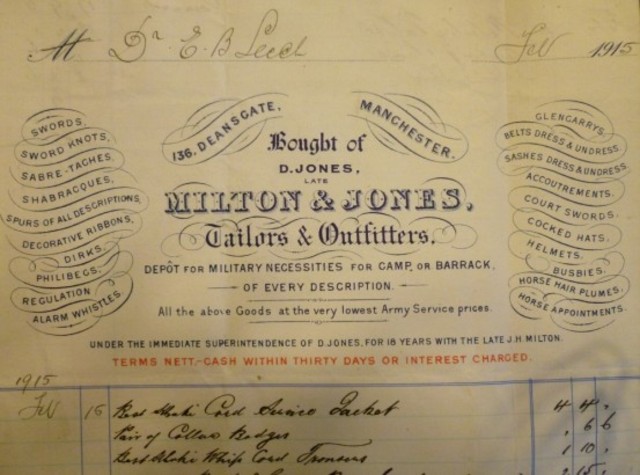 Dr. E. B. Leech Feb 1915
136, DEANSGATE, MANCHESTER.
Bought of
D. JONES,
LATE
MILTON & JONES,
Tailors & Outfitters.
DEPÔT FOR MILITARY NECESSITIES FOR CAMP, OR BARRACK,
OF EVERY DESCRIPTION.
All the above Goods at the very lowest Army Service prices.
SWORDS,
SWORD KNOTS,
SABRE-TACHES,
SHABRACQUES,
SPURS OF ALL DESCRIPTIONS,
DECORATIVE RIBBONS,
DIRKS,
PHILIBEGS,
REGULATION
ALARM WHISTLES.
GLENGARRYS,
BELTS DRESS & UNDRESS,
SASHES DRESS & UNDRESS,
ACCOUTREMENTS,
COURT SWORDS,
COCKED HATS,
HELMETS,
BUSBIES,
HORSE HAIR PLUMES,
HORSE APPOINTMENTS.
UNDER THE IMMEDIATE SUPERINTENDENCE OF D. JONES, FOR 18 YEARS WITH THE LATE J. H. MILTON.
TERMS NETT.-CASH WITHIN THIRTY DAYS OR INTEREST CHARGED.
1915
Feb 15 Best Khaki Cord Service Jacket 4 4 "
Pair of Collar Badges " 6 6
Best Khaki Whip Cord Trousers 1 10 "